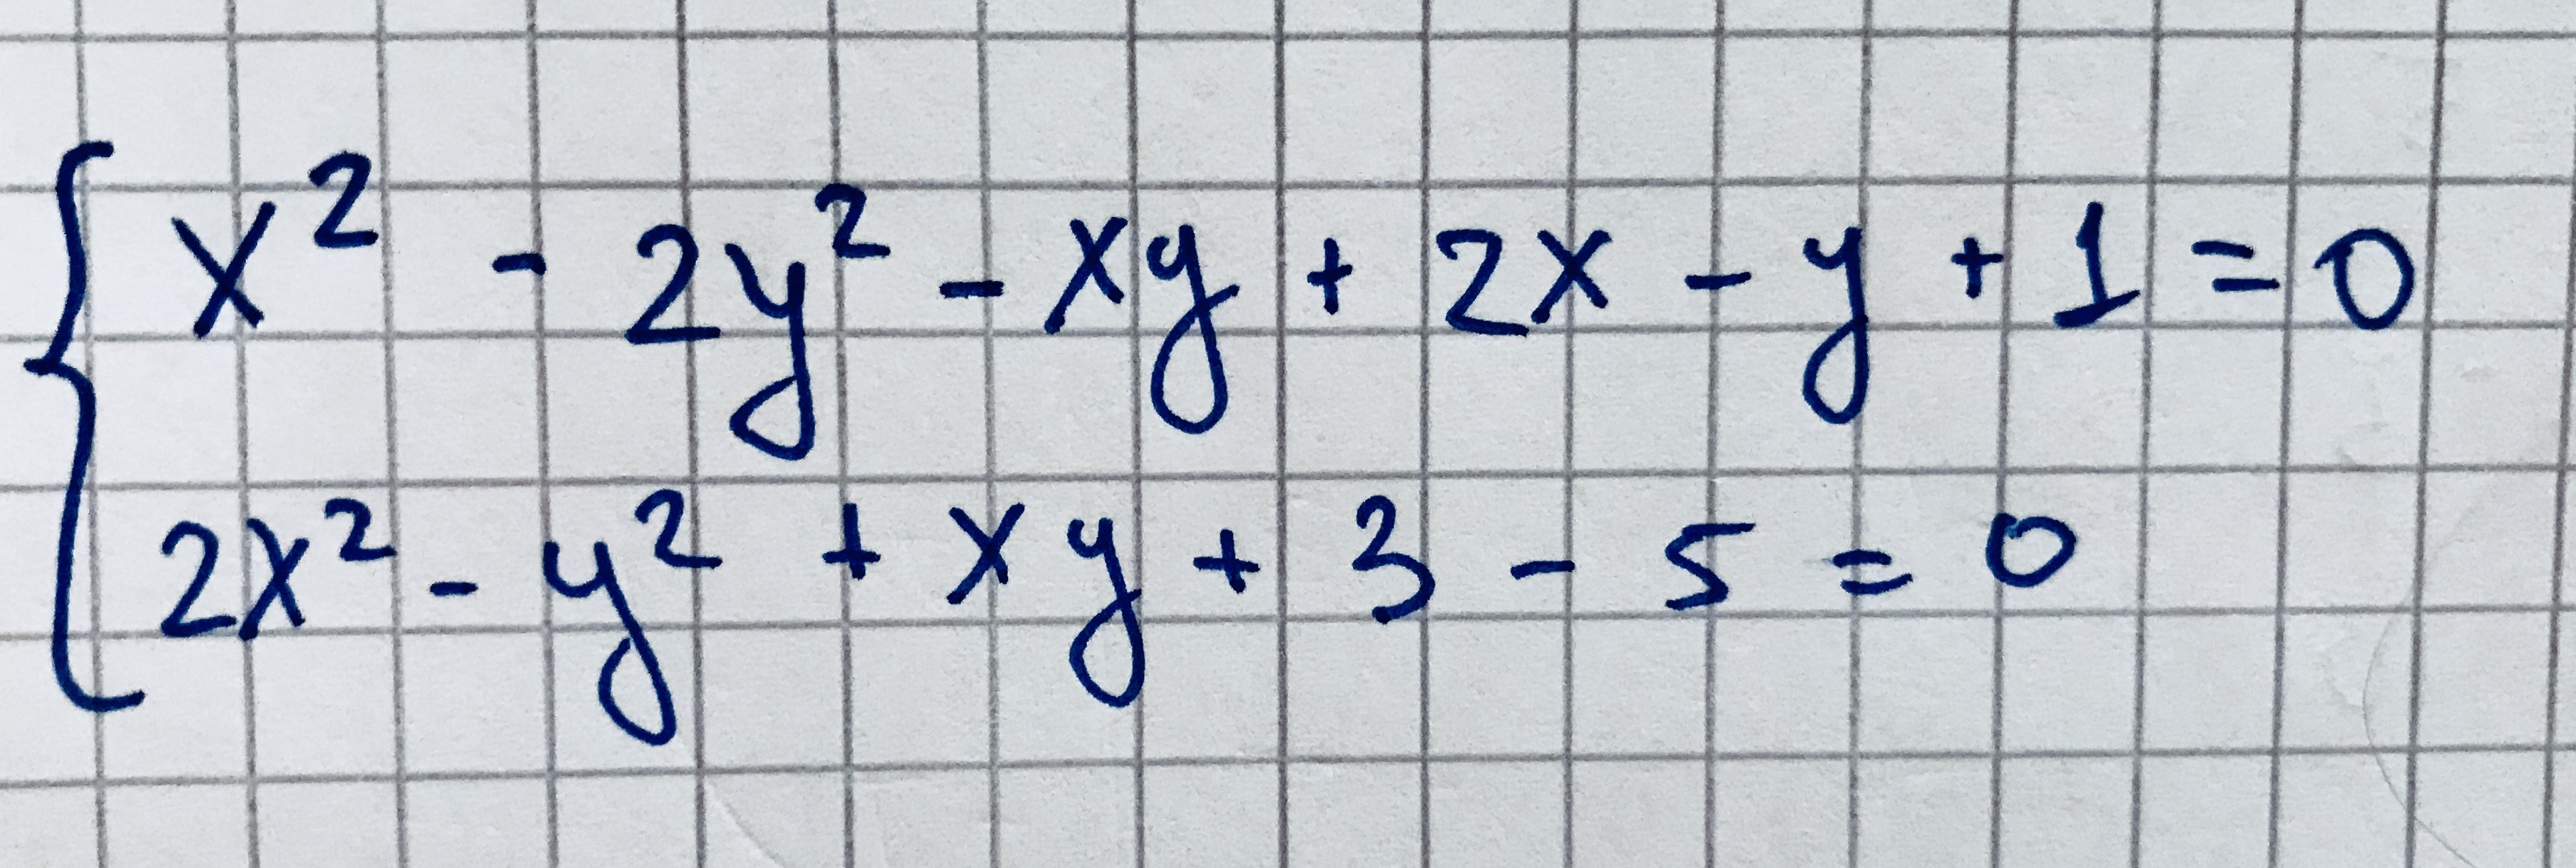 x² - 2y² - xy + 2x - y + 1 = 0
2x² - y² + xy + 3 - 5 = 0